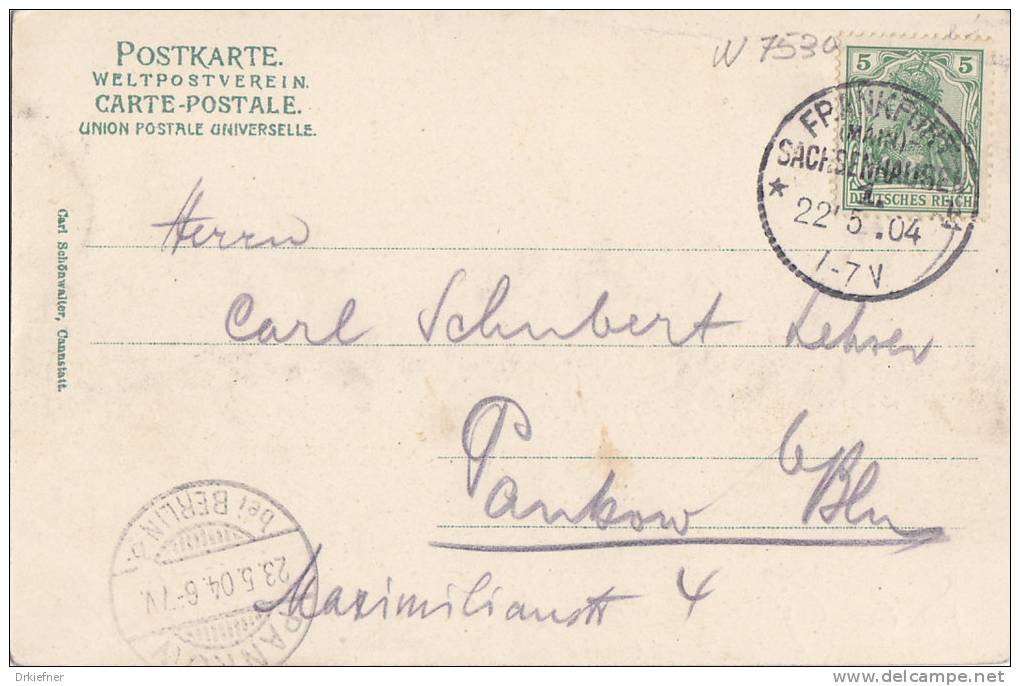 POSTKARTE.
WELTPOSTVEREIN.
CARTE-POSTALE.
UNION POSTALE UNIVERSELLE.
W 7530
5 5
DEUTSCHES REICH
FRANKFURT
(MAIN)
SACHSENHAUSEN
1.
* 22 5 .04 *
7-7V.
Carl Schönwalter, Cannstatt.
Herrn
Carl Schubert Lehrer
Pankow b/Bln
Maximilianstr 4
PANKOW
bei BERLIN
23.5.04.6-7V.
Drkiefner
delcampe.net